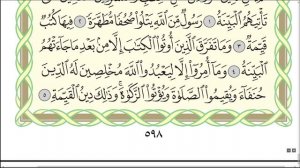 تَأْتِيَهُمُ ٱلْبَيِّنَةُ ١ رَسُولٌ مِّنَ ٱللَّهِ يَتْلُوا۟ صُحُفًا مُّطَهَّرَةً ٢ فِيهَا كُتُبٌ
قَيِّمَةٌ ٣ وَمَا تَفَرَّقَ ٱلَّذِينَ أُوتُوا۟ ٱلْكِتَـٰبَ إِلَّا مِنۢ بَعْدِ مَا جَآءَتْهُمُ
ٱلْبَيِّنَةُ ٤ وَمَآ أُمِرُوٓا۟ إِلَّا لِيَعْبُدُوا۟ ٱللَّهَ مُخْلِصِينَ لَهُ ٱلدِّينَ
حُنَفَآءَ وَيُقِيمُوا۟ ٱلصَّلَوٰةَ وَيُؤْتُوا۟ ٱلزَّكَوٰةَ وَذَٰلِكَ دِينُ ٱلْقَيِّمَةِ ٥
٥٩٨